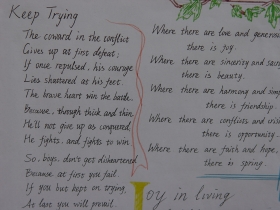 Keep Trying
The coward in the conflict
Gives up at first defeat;
If once repulsed, his courage
Lies shattered at his feet.
The brave heart wins the battle.
Because, through thick and thin
He'll not give up as conquered,
He fights, and fights to win.
So, boys, don't get disheartened
Because at first you fail.
If you but keep on trying,
At last you will prevail.
Where there are love and
there is joy.
Where there are sincerity and
there is beauty.
Where there are harmony and
there is friendship.
Where there are conflicts and
there is opportunity.
Where there are faith and hope,
there is spring.
Joy in living